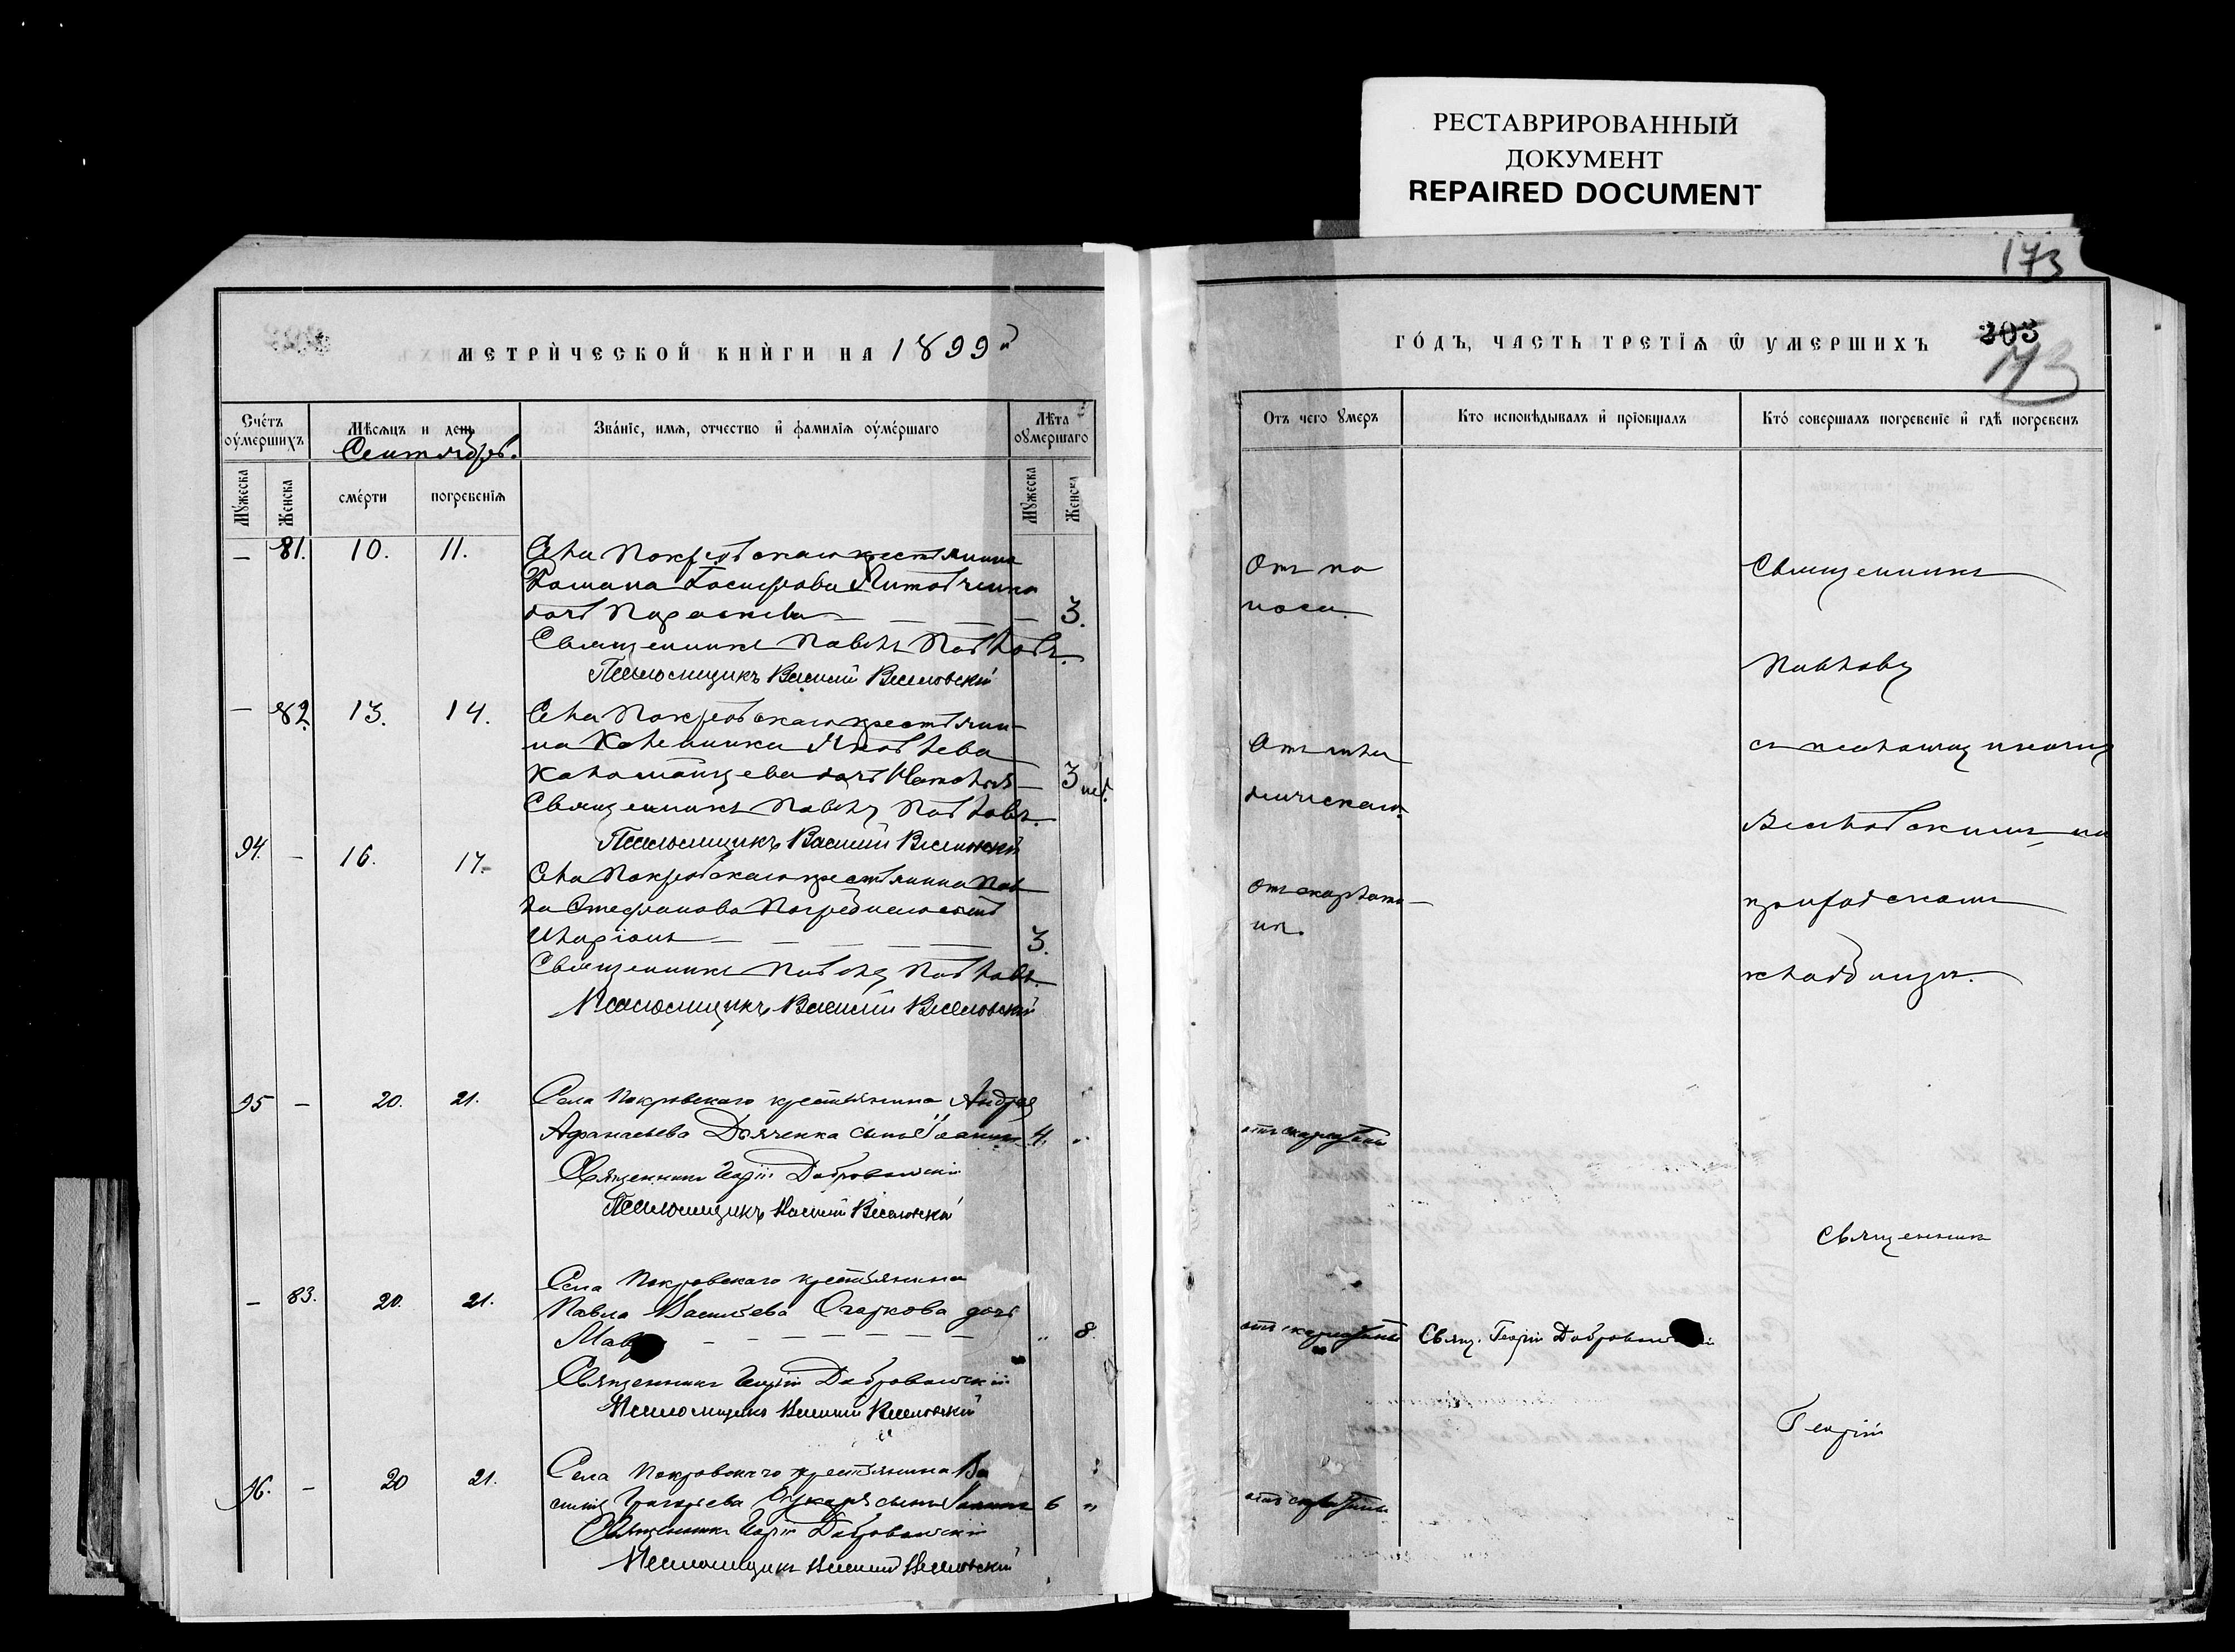 РЕСТАВРИРОВАННЫЙ
ДОКУМЕНТ
REPAIRED DOCUMENT
173
МЕТРИ́ЧЕСКОЙ КНИ́ГИ НА 1899
Сче́тъ оу҆ме́ршихъ
Мѣсѧцъ и день
Сентябрь.
Зва́нїе, имѧ, отчество и҆ фамилїѧ оу҆ме́ршаго
Лѣта оумершаго
Мужеска
Женска
сме́рти
погребенїѧ
Мужеска
Женска
— 81. 10. 11. Села Покровскаго крестьянина
дочь Параскева — — — — 3.
Священникъ Павелъ Павловъ.
Псаломщикъ Василій Веселовскій
— 82. 13. 14. Села Покровскаго крестьяни-
на Яковлева
дочь 3
Священникъ Павелъ Павловъ.
Псаломщикъ Василій Веселовскій
94. — 16. 17. Села Покровскаго крестьянина Пав
ла Стефанова сынъ
Иларіонъ — — — — 3.
Священникъ Павелъ Павловъ.
Псаломщикъ Василій Веселовскій
95 — 20. 21. Села Покровскаго крестьянина Андрея
Афанасьева Дьяченка сынъ Іоаннъ 4. „
Священникъ Георгій Добровольскій
Псаломщикъ Василій Веселовскій
— 83. 20. 21. Села Покровскаго крестьянина
Павла Васильева Огаркова дочь
— — — — — — „ 8.
Священникъ Георгій Добровольскій
Псаломщикъ Василій Веселовскій
96. — 20 21. Села Покровскаго крестьянина Ва
силія Григорьева сынъ Іоаннъ 6 „
Священникъ Георгій Добровольскій
Псаломщикъ Василій Веселовскій
ГО́ДЪ, ЧАСТЬ ТРЕТІѦ Ѿ УМЕРШИХЪ
203
173
Отъ чего ѹмеръ
Кто исповѣдывалъ и҆ прїобщалъ
Кто́ совершалъ погребенїе и҆ гдѣ погребенъ
Отъ по
носа.
Священникъ
Павловъ
съ псаломщикомъ
Веселовскимъ на
приходскомъ
кладбищѣ.
Отъ скарлати
ны.
отъ скарлатины
Священникъ
отъ скарлатины Свящ. Георгій
Георгій
отъ скарлатины